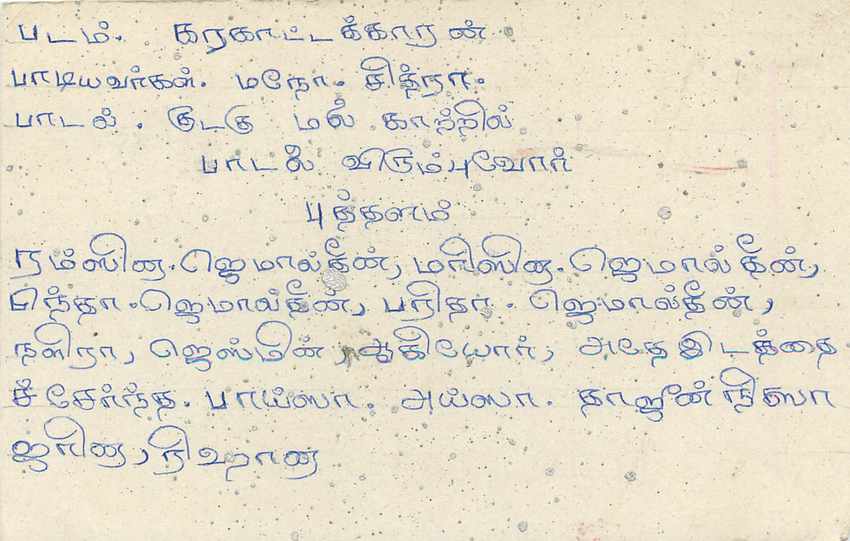 படம். கரகாட்டக்காரன்
பாடியவர்கள். மநோ. சித்ரா.
பாடல். குடகு மல் காற்றில்
பாடல் விரும்புவோர்
புத்தளம்
ரம்ஸின. ஜெமால்தீன், மரிஸின. ஜெமால்தீன்,
ஜெமால்தீன், பரிதா. ஜெமால்தீன்,
நஸிரா, ஜெஸ்மின், ஆகியோர், அதே இடத்தை
ச் சேர்ந்த. பாய்ஸா. அய்ஸா. தாஜூன் நிஸா